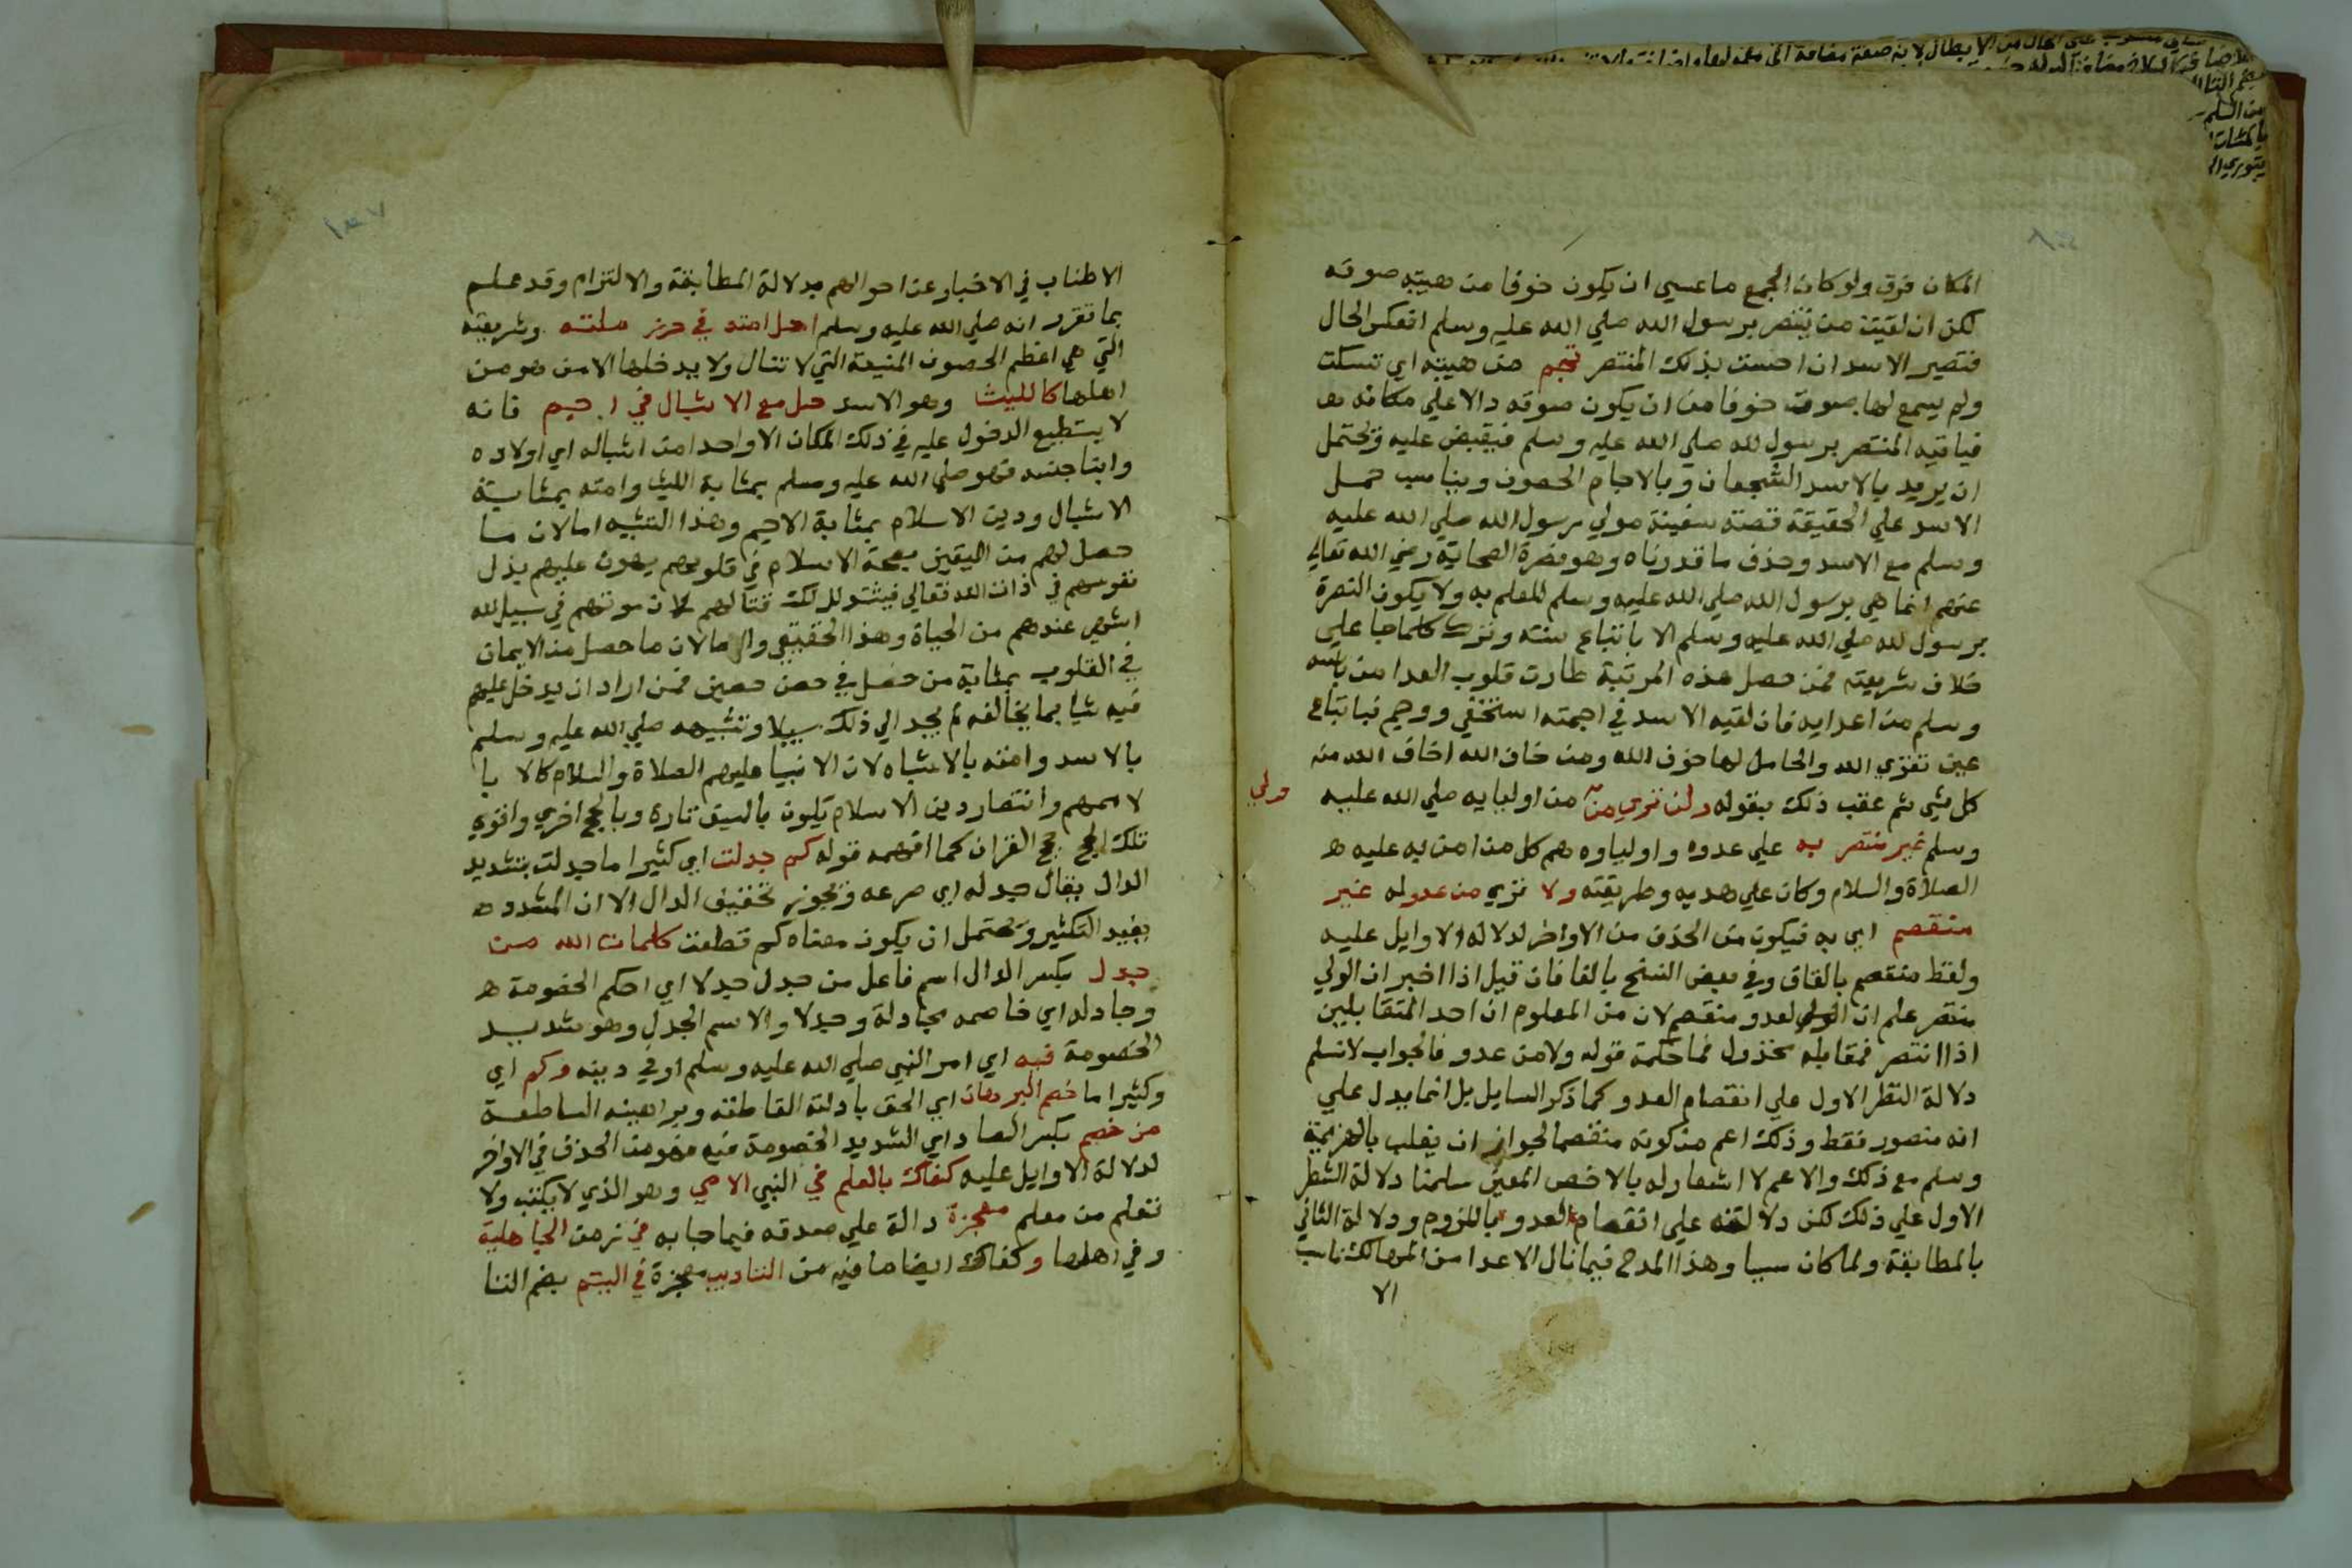 المكان فرق ولو كان الجمع ما عسي ان يكون خوفا من هيبته صوته
لكن ان لقيت من ينتصر برسول الله صلي الله عليه وسلم انعكس الحال
فتصير الاسد ان احست بذلك المنتصر تجم من هيبته اي تسكت
ولم يسمع لها صوت خوفا من ان يكون صوته دالا علي مكانه
فياتيه المنتصر برسول لله صلي الله عليه وسلم فيقبض عليه ويحتمل
ان يريد بالاسد الشجعان وبالاجام الحصون ويناسب حمل
الاسد علي الحقيقة قصة سفينة مولي رسول الله صلي الله عليه
وسلم مع الاسد وحذف ما قدرناه وهو نصرة الصحابة رضي الله تعالي
عنهم انما هي برسول الله صلي الله عليه وسلم للعلم به ولا يكون النصرة
برسول لله صلي الله عليه وسلم الا باتباع سنته وترك كلما جا علي
خلاف شريعته فمن حصل هذه المرتبة طارت قلوب العدا من باسه
وسلم من اعدايه فان لقيه الاسد في اجمته استخفي ووجم فباتباع
عين تقوي الله والحامل لها خوف الله ومن خاف الله اخاف الله منه
كل شي ثم عقب ذلك بقوله ولن تري من ولي من اوليايه صلي الله عليه
وسلم غير منتصر به علي عدوه واولياوه هم كل من امن به عليه
الصلاة والسلام وكان علي هديه وطريقته ولا تري من عدو له غير
منقصم اي به فيكون من الحذف من الاواخر لدلالة الاوايل عليه
ولفظ منقصم بالقاف وفي بعض النسخ بالفا فان قيل اذا اخبر ان الولي
منتصر علم ان العدو منقصم لان من المعلوم ان احد المتقابلين
اذا انتصر فمقابله مخذول فما حكمة قوله ولا من عدو فالجواب لا نسلم
دلالة الشطر الاول علي انقصام العدو كما ذكر السايل بل انما يدل علي
انه منصور فقط وذلك اعم من كونه منقصما لجواز ان يغلب بالهزيمة
وسلم مع ذلك والاعم لا اشعار له بالاخص المعين سلمنا دلالة الشطر
الاول علي ذلك لكن دلالته علي انقصام العدو باللزوم ودلالة الثاني
بالمطابقة ولما كان سببا وهذا المدح فيما نال الاعدا من المهالك ناسب
الا
الاطناب في الاخبار عن احوالهم بدلالة المطابقة والالتزام وقد علم
بما تقرر انه صلي الله عليه وسلم احل امته في حرز ملته وشريعته
التي هي اعظم الحصون المنيعة التي لا تنال ولا يدخلها الا من هو من
اهلها كالليث وهو الاسد حل مع الاشبال في اجم فانه
لا يستطيع الدخول عليه في ذلك المكان الا واحدا من اشباله اي اولاده
وابنا جنسه فهو صلي الله عليه وسلم بمثابة الليث وامته بمثابة
الاشبال ودين الاسلام بمثابة الاجم وهذا التشبيه اما لان ما
حصل لهم من اليقين بصحة الاسلام في قلوبهم يهون عليهم بذل
نفوسهم في ذات الله تعالي فيشتد لذلك قتالهم لان موتهم في سبيل لله
اشهي عندهم من الحياة وهذا الحقيقي واما لان ما حصل من الايمان
في القلوب بمثابة من حصل في حصن حصين فمن اراد ان يدخل عليهم
فيه شيا بما يخالفه لم يجد الي ذلك سبيلا وتشبيهه صلي الله عليه وسلم
بالاسد وامته بالاشباه لان الانبيا عليهم الصلاة والسلام كالابا
لاممهم وانتصار دين الاسلام يكون بالسيف تارة وبالحجج اخري واقوي
تلك الحجج حجج القران كما افهمه قوله كم جدلت اي كثيرا ما جدلت بتشديد
الدال يقال جدله اي صرعه ويجوز تخفيف الدال الا ان المشدد
يفيد التكثير ويحتمل ان يكون معناه كم قطعت كلمات الله من
جدل بكسر الدال اسم فاعل من جدل جدلا اي احكم الخصومة
وجادله اي خاصمه مجادلة وجدلا والاسم الجدل وهو شديد
الخصومة فيه اي امر النبي صلي الله عليه وسلم او في دينه وكم اي
وكثيرا ما خصم البرهان اي الحق بادلته القاطعة وبراهينه الساطعة
من خصم بكسر الصاد اي الشديد الخصومة فيه فهو من الحذف في الاواخر
لدلالة الاوايل عليه كفاك بالعلم في النبي الامي وهو الذي لا يكتب ولا
تعلم من معلم معجزة دالة علي صدقه فيما جا به في زمن الجاهلية
وفي اهلها وكفاك ايضا ما فيه من التاديب معجزة في اليتم بضم التا